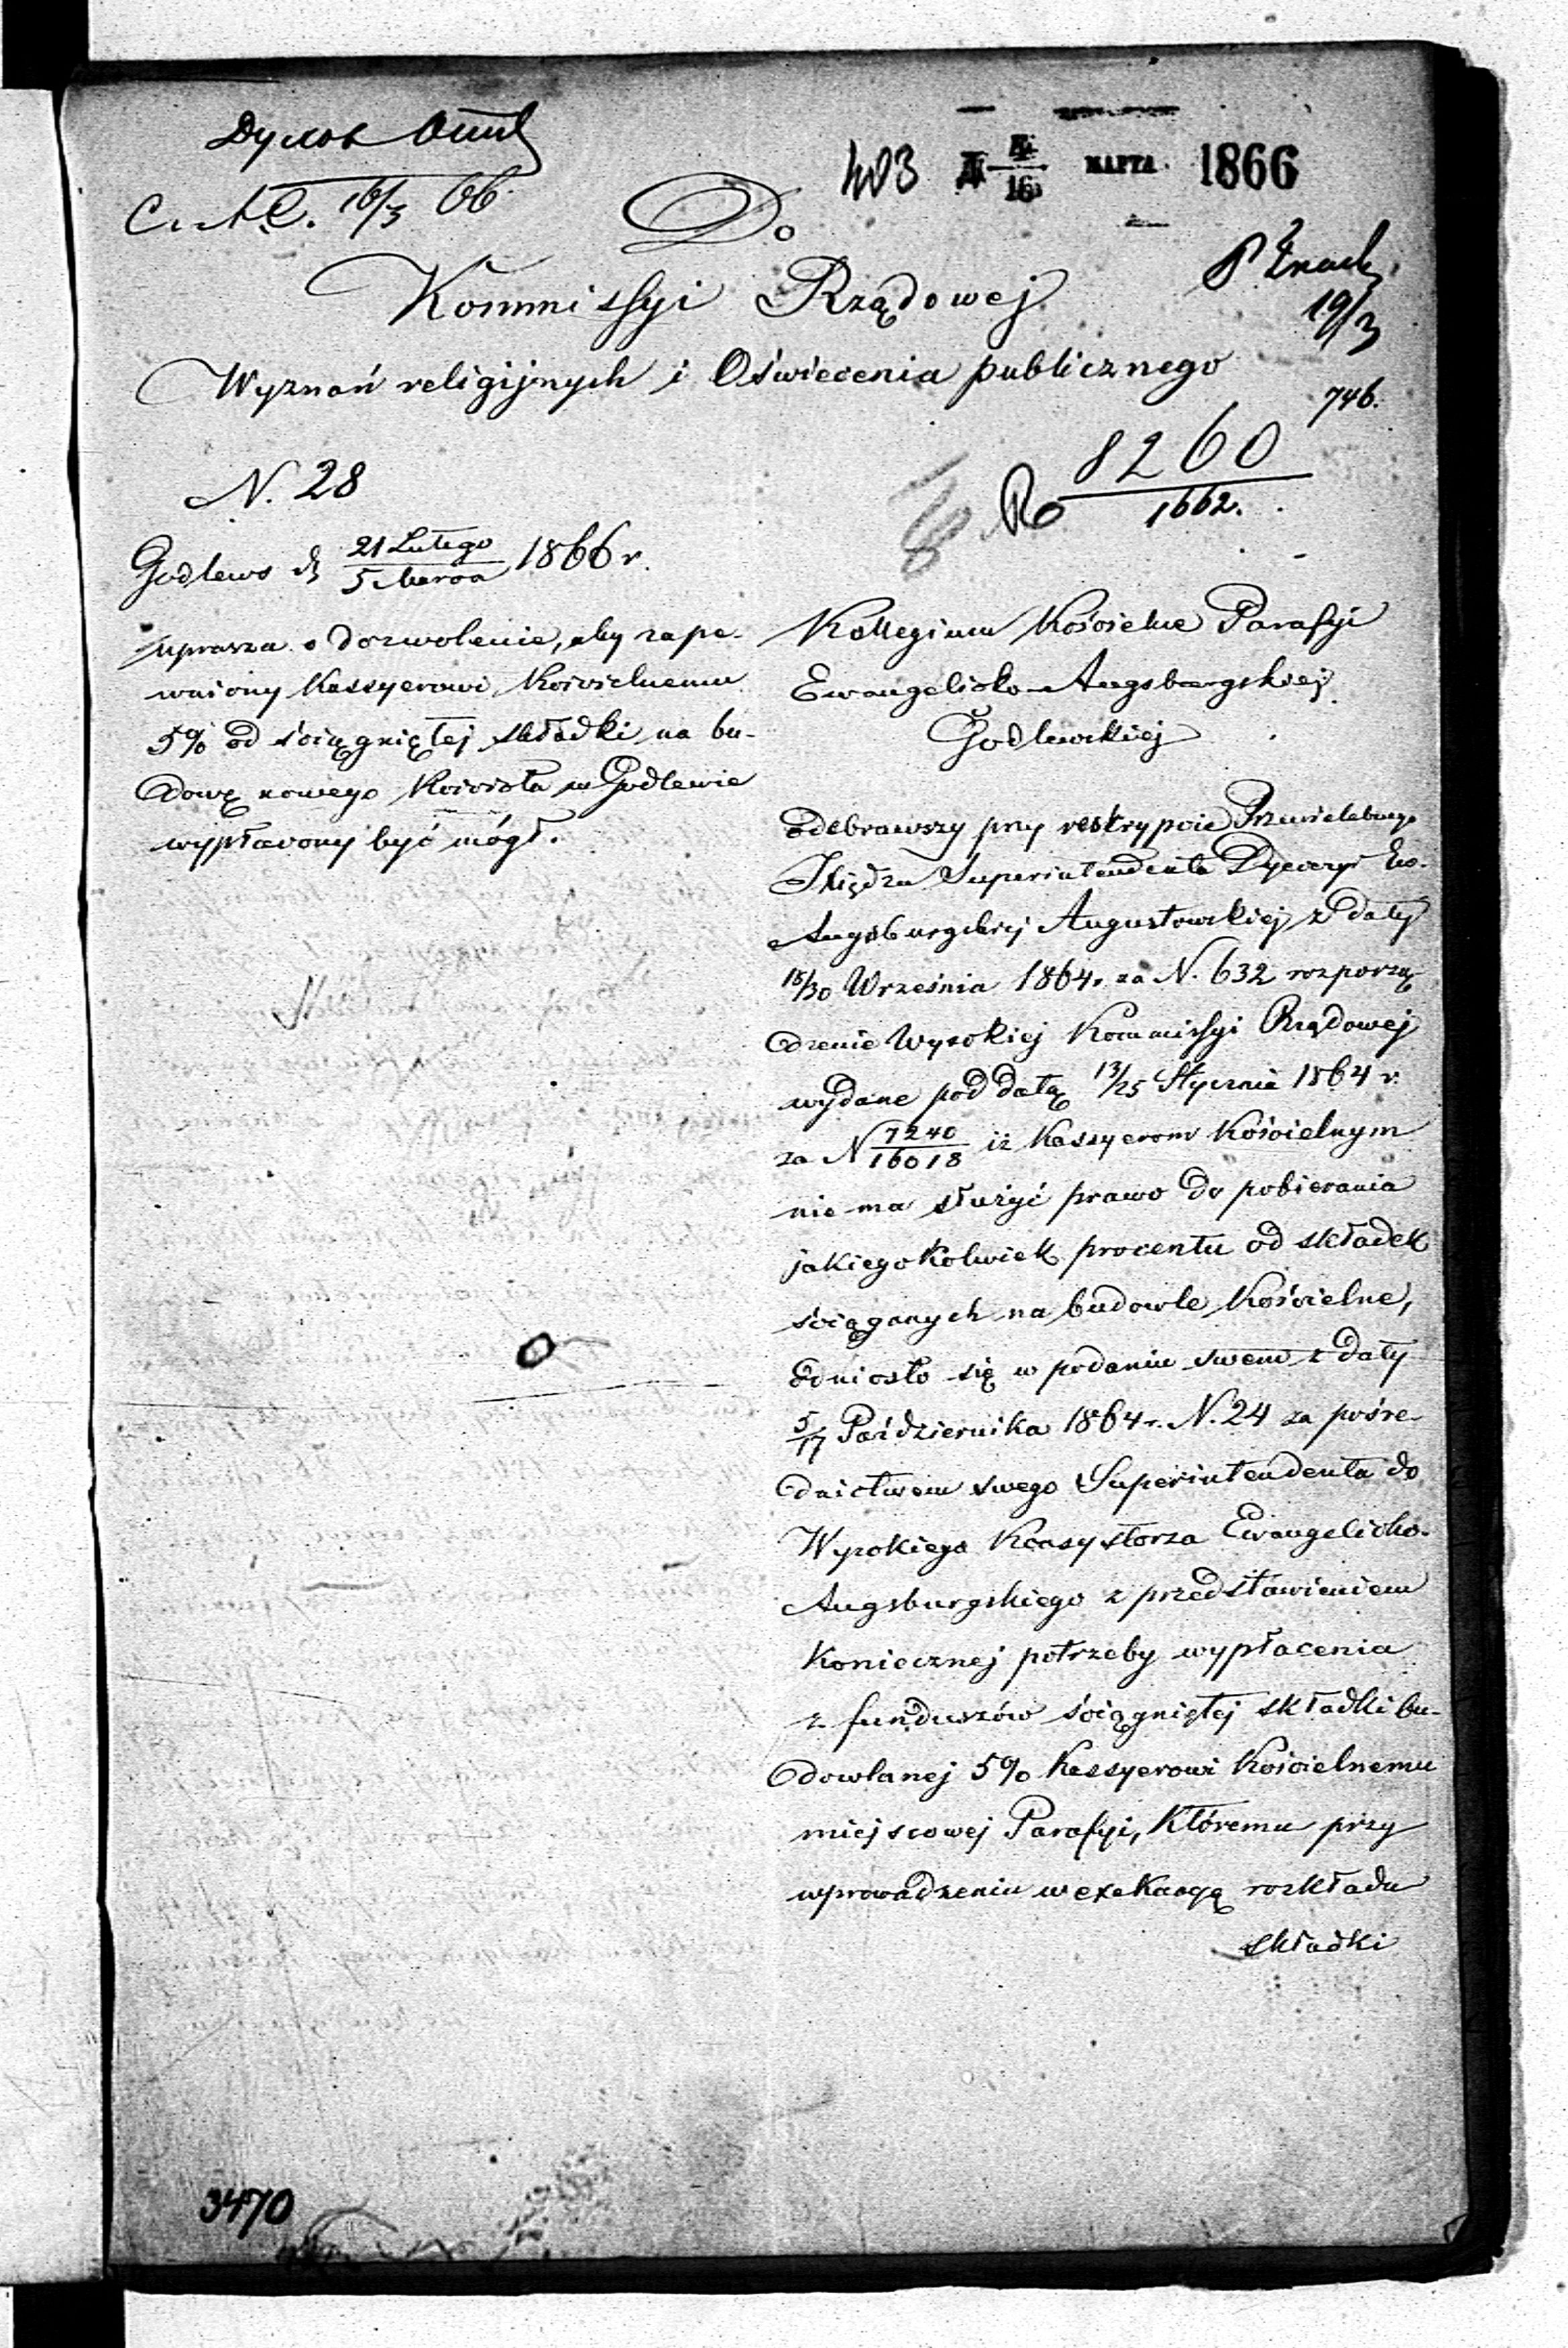 403 4/16 МАРТА 1866
16/3 66
Do
Kommissyi Rządowej
19/3
Wyznań religijnych i Oświecenia publicznego
746.
N. 28
8260/1662.
Godlewo d. 21 Lutego/5 Marca 1866 r.
uprasza o dozwolenie, aby zape-
wniony Kassyerowi Kościelnemu
5% od ściągniętej składki na bu-
dowę nowego Kościoła w Godlewie
wypłacony być mógł.
Kollegium Kościelne Parafyi
Ewangelicko-Augsburgskiej
Godlewskiej
odebrawszy przy reskrypcie Przewielebnego
Xiędza Superintendenta Dyecezyi Ew.
Augsburgskiej Augustowskiej z daty
18/30 Września 1864 r. za N. 632 rozporzą-
dzenie Wysokiej Kommissyi Rządowej
wydane pod datą 13/25 Stycznia 1864 r.
za N 7240/16018 iż Kassyerom Kościelnym
nie ma służyć prawo do pobierania
jakiegokolwiek procentu od składek
ściąganych na budowle Kościelne,
odniosło się w podaniu swem z daty
5/17 Października 1864 r. N. 24 za pośre-
dnictwem swego Superintendenta do
Wysokiego Konsystorza Ewangelicko-
Augsburgskiego z przedstawieniem
Koniecznej potrzeby wypłacenia
z funduszów ściągniętej składki bu-
dowlanej 5% Kassyerowi Kościelnemu
miejscowej Parafyi, Któremu przy
wprowadzeniu w exekucyą rozkładu
składki
3470